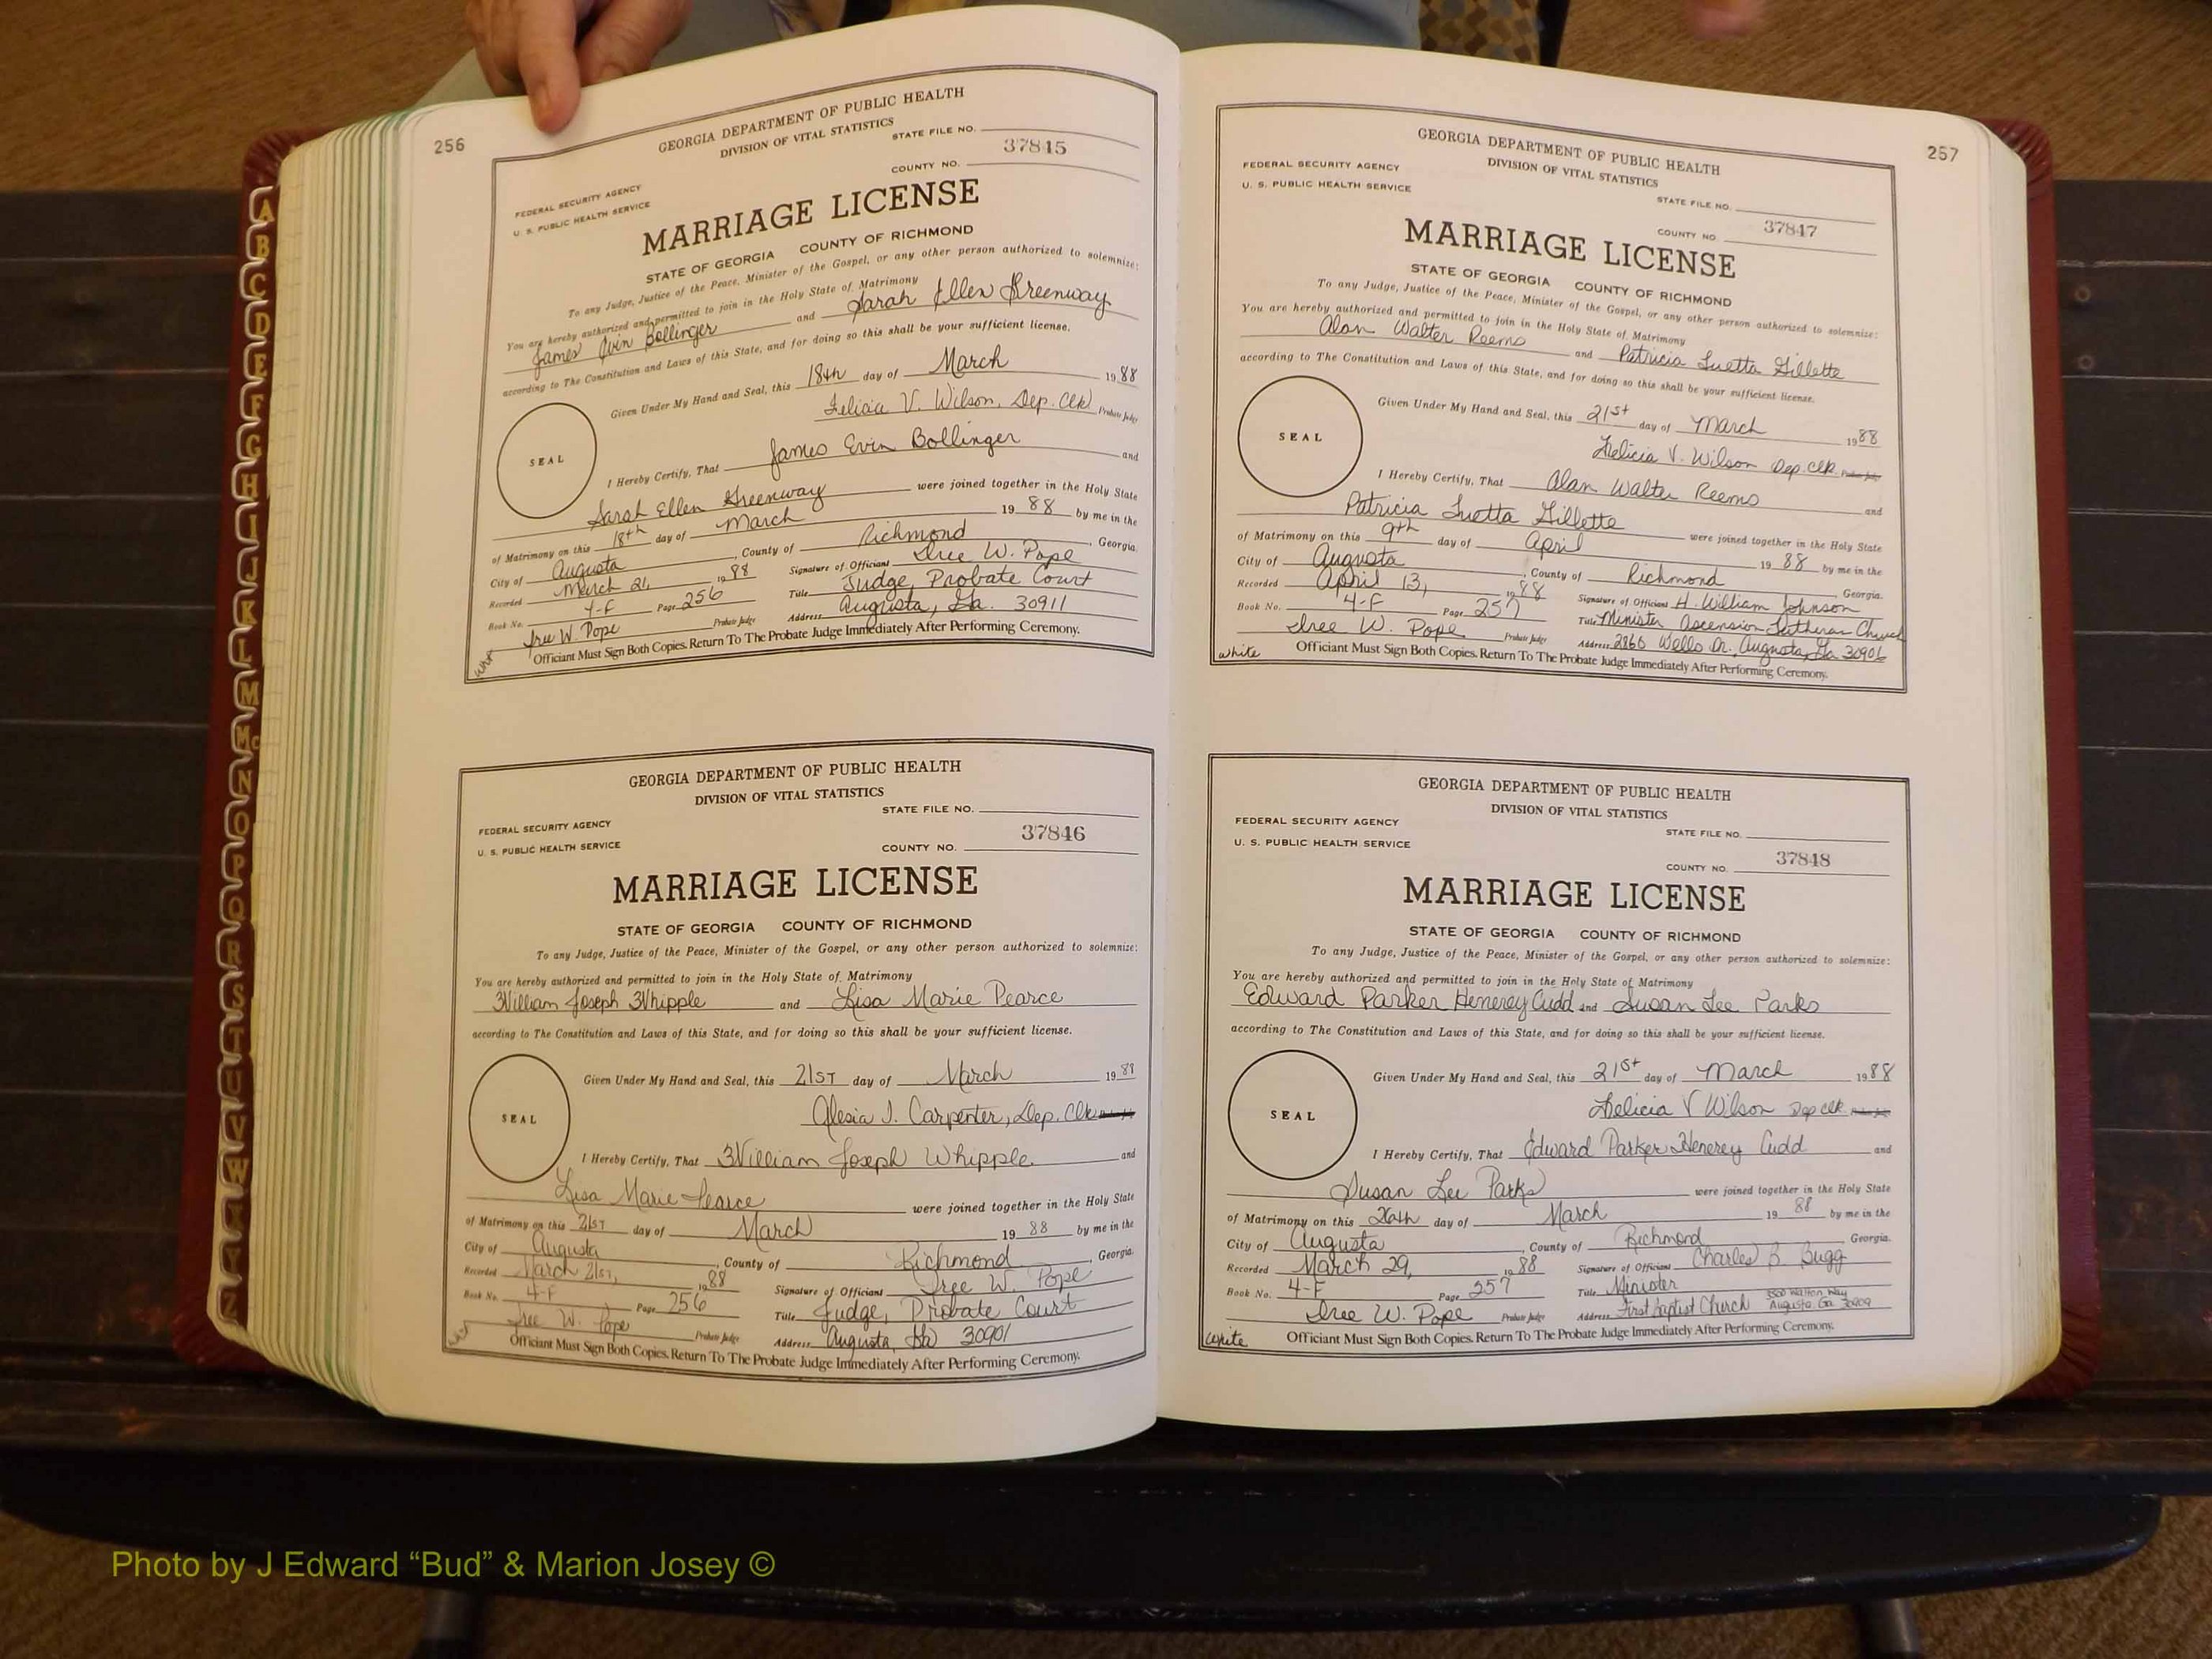 256
GEORGIA DEPARTMENT OF PUBLIC HEALTH
DIVISION OF VITAL STATISTICS
STATE FILE NO.
37845
COUNTY NO.
FEDERAL SECURITY AGENCY
U. S. PUBLIC HEALTH SERVICE
MARRIAGE LICENSE
STATE OF GEORGIA COUNTY OF RICHMOND
To any Judge, Justice of the Peace, Minister of the Gospel, or any other person authorized to solemnize:
You are hereby authorized and permitted to join in the Holy State of Matrimony
James Evin Bollinger and Sarah Ellen Greenway
according to The Constitution and Laws of this State, and for doing so this shall be your sufficient license.
Given Under My Hand and Seal, this 18th day of March 1988
Felicia V. Wilson, Dep. Clk Probate Judge
SEAL
I Hereby Certify, That James Evin Bollinger and
Sarah Ellen Greenway were joined together in the Holy State
of Matrimony on this 18th day of March 19 88 by me in the
City of Augusta, County of Richmond, Georgia.
Recorded March 21, 1988 Signature of Officiant Isree W. Pope
Book No. 4-F Page 256 Title Judge, Probate Court
Isree W. Pope Probate Judge Address Augusta, Ga. 30911
Officiant Must Sign Both Copies. Return To The Probate Judge Immediately After Performing Ceremony.
GEORGIA DEPARTMENT OF PUBLIC HEALTH
DIVISION OF VITAL STATISTICS
STATE FILE NO.
FEDERAL SECURITY AGENCY
37846
U. S. PUBLIC HEALTH SERVICE
COUNTY NO.
MARRIAGE LICENSE
STATE OF GEORGIA COUNTY OF RICHMOND
To any Judge, Justice of the Peace, Minister of the Gospel, or any other person authorized to solemnize:
You are hereby authorized and permitted to join in the Holy State of Matrimony
William Joseph Whipple and Lisa Marie Pearce
according to The Constitution and Laws of this State, and for doing so this shall be your sufficient license.
Given Under My Hand and Seal, this 21ST day of March 1988
Alesia J. Carpenter, Dep. Clk
SEAL
I Hereby Certify, That William Joseph Whipple and
Lisa Marie Pearce were joined together in the Holy State
of Matrimony on this 21ST day of March 19 88 by me in the
City of Augusta, County of Richmond, Georgia.
Recorded March 21ST, 1988 Signature of Officiant Isree W. Pope
Book No. 4-F Page 256 Title Judge, Probate Court
Isree W. Pope Probate Judge Address Augusta, Ga 30901
Officiant Must Sign Both Copies. Return To The Probate Judge Immediately After Performing Ceremony.
257
GEORGIA DEPARTMENT OF PUBLIC HEALTH
DIVISION OF VITAL STATISTICS
FEDERAL SECURITY AGENCY
U. S. PUBLIC HEALTH SERVICE
STATE FILE NO.
37847
COUNTY NO.
MARRIAGE LICENSE
STATE OF GEORGIA COUNTY OF RICHMOND
To any Judge, Justice of the Peace, Minister of the Gospel, or any other person authorized to solemnize:
You are hereby authorized and permitted to join in the Holy State of Matrimony
Alan Walter Reems and Patricia Luetta Gillette
according to The Constitution and Laws of this State, and for doing so this shall be your sufficient license.
Given Under My Hand and Seal, this 21st day of March 1988
Felicia V. Wilson Dep. Clk.
SEAL
I Hereby Certify, That Alan Walter Reems and
Patricia Luetta Gillette were joined together in the Holy State
of Matrimony on this 9th day of April 19 88 by me in the
City of Augusta, County of Richmond, Georgia.
Recorded April 13, 1988 Signature of Officiant H. William Johnson
Book No. 4-F Page 257 Title Minister Ascension Lutheran Church
Isree W. Pope Probate Judge Address 2860 Wells Dr. Augusta, Ga 30906
white Officiant Must Sign Both Copies. Return To The Probate Judge Immediately After Performing Ceremony.
GEORGIA DEPARTMENT OF PUBLIC HEALTH
DIVISION OF VITAL STATISTICS
FEDERAL SECURITY AGENCY
STATE FILE NO.
U. S. PUBLIC HEALTH SERVICE
37848
COUNTY NO.
MARRIAGE LICENSE
STATE OF GEORGIA COUNTY OF RICHMOND
To any Judge, Justice of the Peace, Minister of the Gospel, or any other person authorized to solemnize:
You are hereby authorized and permitted to join in the Holy State of Matrimony
Edward Parker Henerey Cudd and Susan Lee Parks
according to The Constitution and Laws of this State, and for doing so this shall be your sufficient license.
Given Under My Hand and Seal, this 21st day of March 1988
Felicia V Wilson Dep Clk.
SEAL
I Hereby Certify, That Edward Parker Henerey Cudd and
Susan Lee Parks were joined together in the Holy State
of Matrimony on this 26th day of March 19 88 by me in the
City of Augusta, County of Richmond Georgia.
Recorded March 29, 1988 Signature of Officiant Charles B. Bugg
Book No. 4-F Page 257 Title Minister
Isree W. Pope Probate Judge Address First Baptist Church 3500 Walton Way Augusta, Ga 30909
white Officiant Must Sign Both Copies. Return To The Probate Judge Immediately After Performing Ceremony.
A
B
C
D
E
F
G
H
I
J
K
L
M
Mc
N
O
P
Q
R
S
T
U
V
W
Z
Photo by J Edward “Bud” & Marion Josey ©